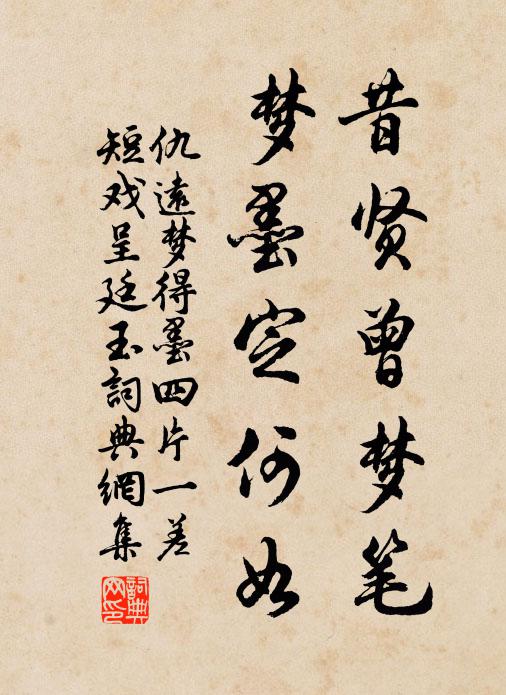 昔贤曾梦笔
梦墨定何如
仇遠梦得墨四片一差
短戏呈廷玉詞典網集
詞典网印